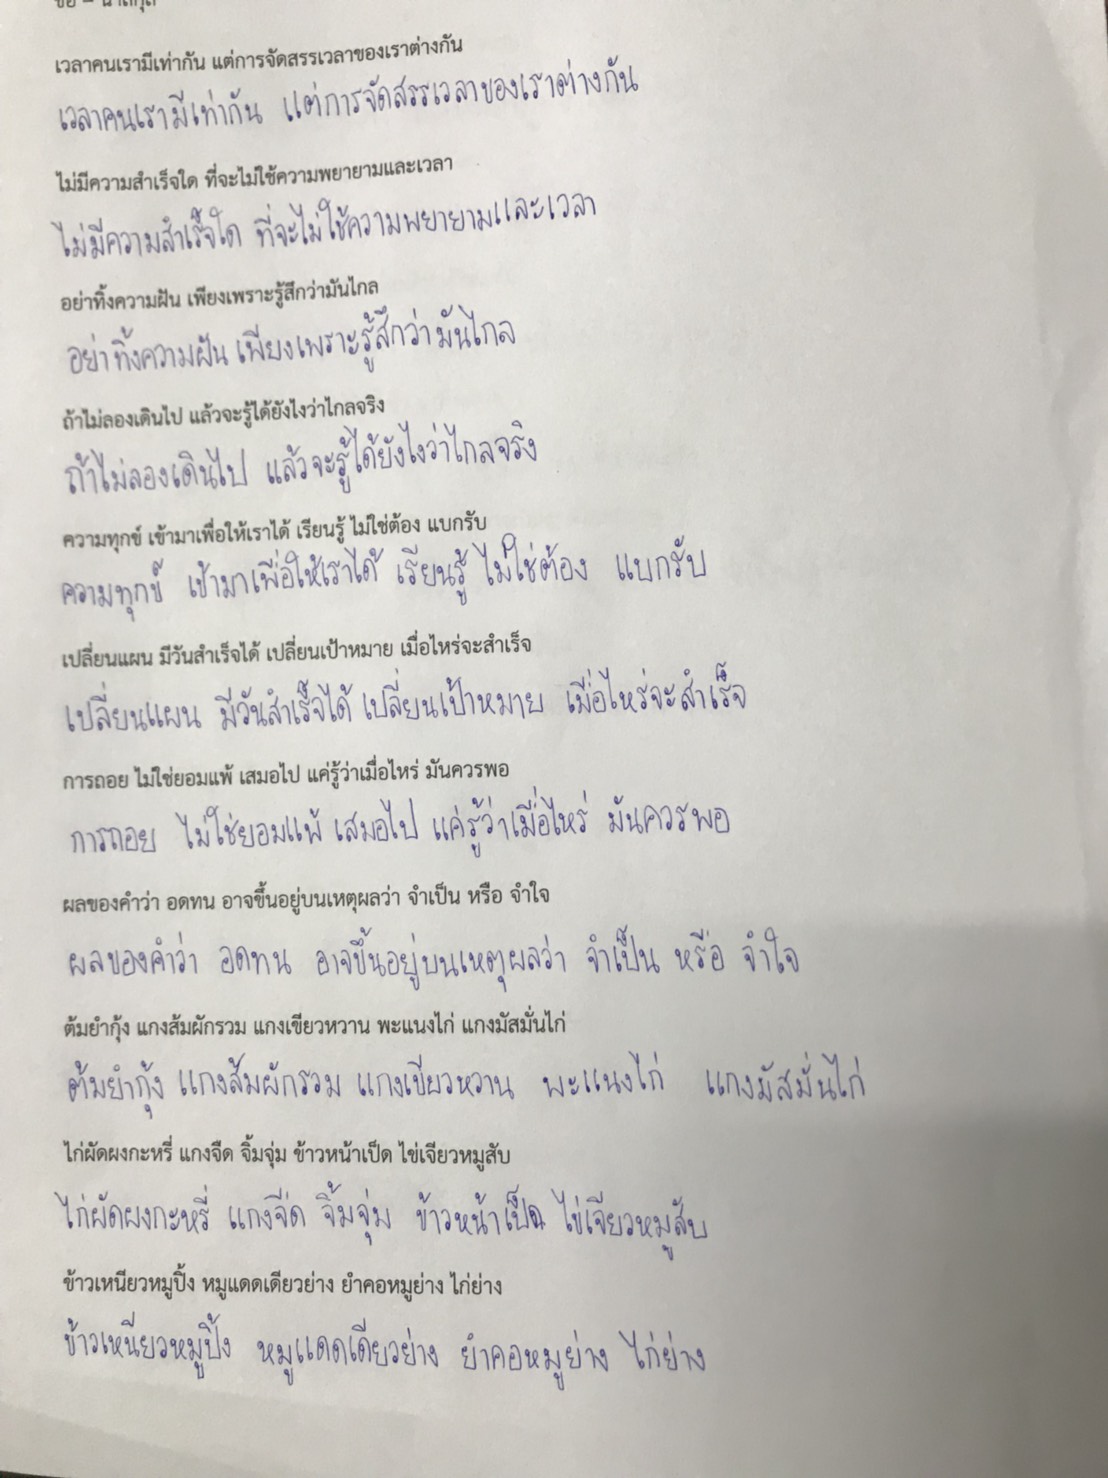 ชื่อ – นามสกุล
เวลาคนเรามีเท่ากัน แต่การจัดสรรเวลาของเราต่างกัน
เวลาคนเรามีเท่ากัน แต่การจัดสรรเวลาของเราต่างกัน
ไม่มีความสำเร็จใด ที่จะไม่ใช้ความพยายามและเวลา
ไม่มีความสำเร็จใด ที่จะไม่ใช้ความพยายามและเวลา
อย่าทิ้งความฝัน เพียงเพราะรู้สึกว่ามันไกล
อย่าทิ้งความฝัน เพียงเพราะรู้สึกว่ามันไกล
ถ้าไม่ลองเดินไป แล้วจะรู้ได้ยังไงว่าไกลจริง
ถ้าไม่ลองเดินไป แล้วจะรู้ได้ยังไงว่าไกลจริง
ความทุกข์ เข้ามาเพื่อให้เราได้ เรียนรู้ ไม่ใช่ต้อง แบกรับ
ความทุกข์ เข้ามาเพื่อให้เราได้ เรียนรู้ ไม่ใช่ต้อง แบกรับ
เปลี่ยนแผน มีวันสำเร็จได้ เปลี่ยนเป้าหมาย เมื่อไหร่จะสำเร็จ
เปลี่ยนแผน มีวันสำเร็จได้ เปลี่ยนเป้าหมาย เมื่อไหร่จะสำเร็จ
การถอย ไม่ใช่ยอมแพ้ เสมอไป แค่รู้ว่าเมื่อไหร่ มันควรพอ
การถอย ไม่ใช่ยอมแพ้ เสมอไป แค่รู้ว่าเมื่อไหร่ มันควรพอ
ผลของคำว่า อดทน อาจขึ้นอยู่บนเหตุผลว่า จำเป็น หรือ จำใจ
ผลของคำว่า อดทน อาจขึ้นอยู่บนเหตุผลว่า จำเป็น หรือ จำใจ
ต้มยำกุ้ง แกงส้มผักรวม แกงเขียวหวาน พะแนงไก่ แกงมัสมั่นไก่
ต้มยำกุ้ง แกงส้มผักรวม แกงเขียวหวาน พะแนงไก่ แกงมัสมั่นไก่
ไก่ผัดผงกะหรี่ แกงจืด จิ้มจุ่ม ข้าวหน้าเป็ด ไข่เจียวหมูสับ
ไก่ผัดผงกะหรี่ แกงจืด จิ้มจุ่ม ข้าวหน้าเป็ด ไข่เจียวหมูสับ
ข้าวเหนียวหมูปิ้ง หมูแดดเดียวย่าง ยำคอหมูย่าง ไก่ย่าง
ข้าวเหนียวหมูปิ้ง หมูแดดเดียวย่าง ยำคอหมูย่าง ไก่ย่าง